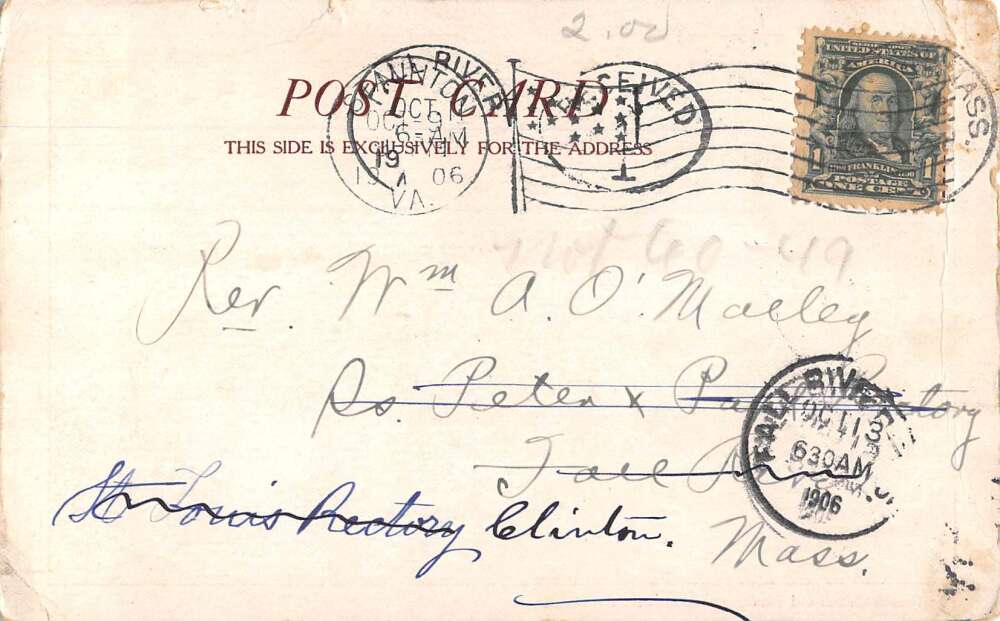 2.00
POST CARD
THIS SIDE IS EXCLUSIVELY FOR THE ADDRESS
FALL RIVER
STAUNTON
OCT
6-AM
1906
VA.
MASS.
SERIES 1902
UNITED STATES OF
AMERICA
1 FRANKLIN 1
POSTAGE
ONE CENT
not 60-49
Rev. Wm A. O'Malley
Ss Peter & Paul Rectory
Fall River
St Louis Rectory Clinton.
Mass.
FALL RIVER
OCT 13
630AM
1906